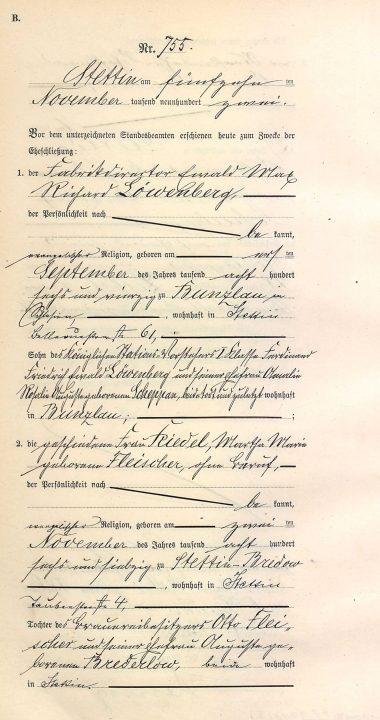 B.
Nr. 755.
Stettin am fünfzehn ten
November tausend neunhundert zwei.
Vor dem unterzeichneten Standesbeamten erschienen heute zum Zwecke der
Eheschließung:
1. der Fabrikdirector Ewald Max
Richard Löwenberg,
der Persönlichkeit nach
be kannt,
evangelischer Religion, geboren am ten
September des Jahres tausend acht hundert
sechs und vierzig zu Bunzlau in
Schlesien, wohnhaft in Stettin
61,
Sohn des Königlichen Stations-Vorstehers I Klasse Ferdinand
Friedrich Ewald Löwenberg und seiner Ehefrau Amalie
Rosalie Auguste geborenen Scheppan, beide todt und zuletzt wohnhaft
in Bunzlau;
2. die geschiedene Frau Friedel, Martha Marie
geborene Fleischer, ohne Beruf,
der Persönlichkeit nach
be kannt,
evangelischer Religion, geboren am zwei ten
November des Jahres tausend acht hundert
sechs und siebzig zu Stettin-Bredow
, wohnhaft in Stettin
Taubenstraße 4,
Tochter des Brauereibesitzers Otto Flei-
scher und seiner Ehefrau Auguste ge-
borenen Brederlow, beide wohnhaft
in Stettin.